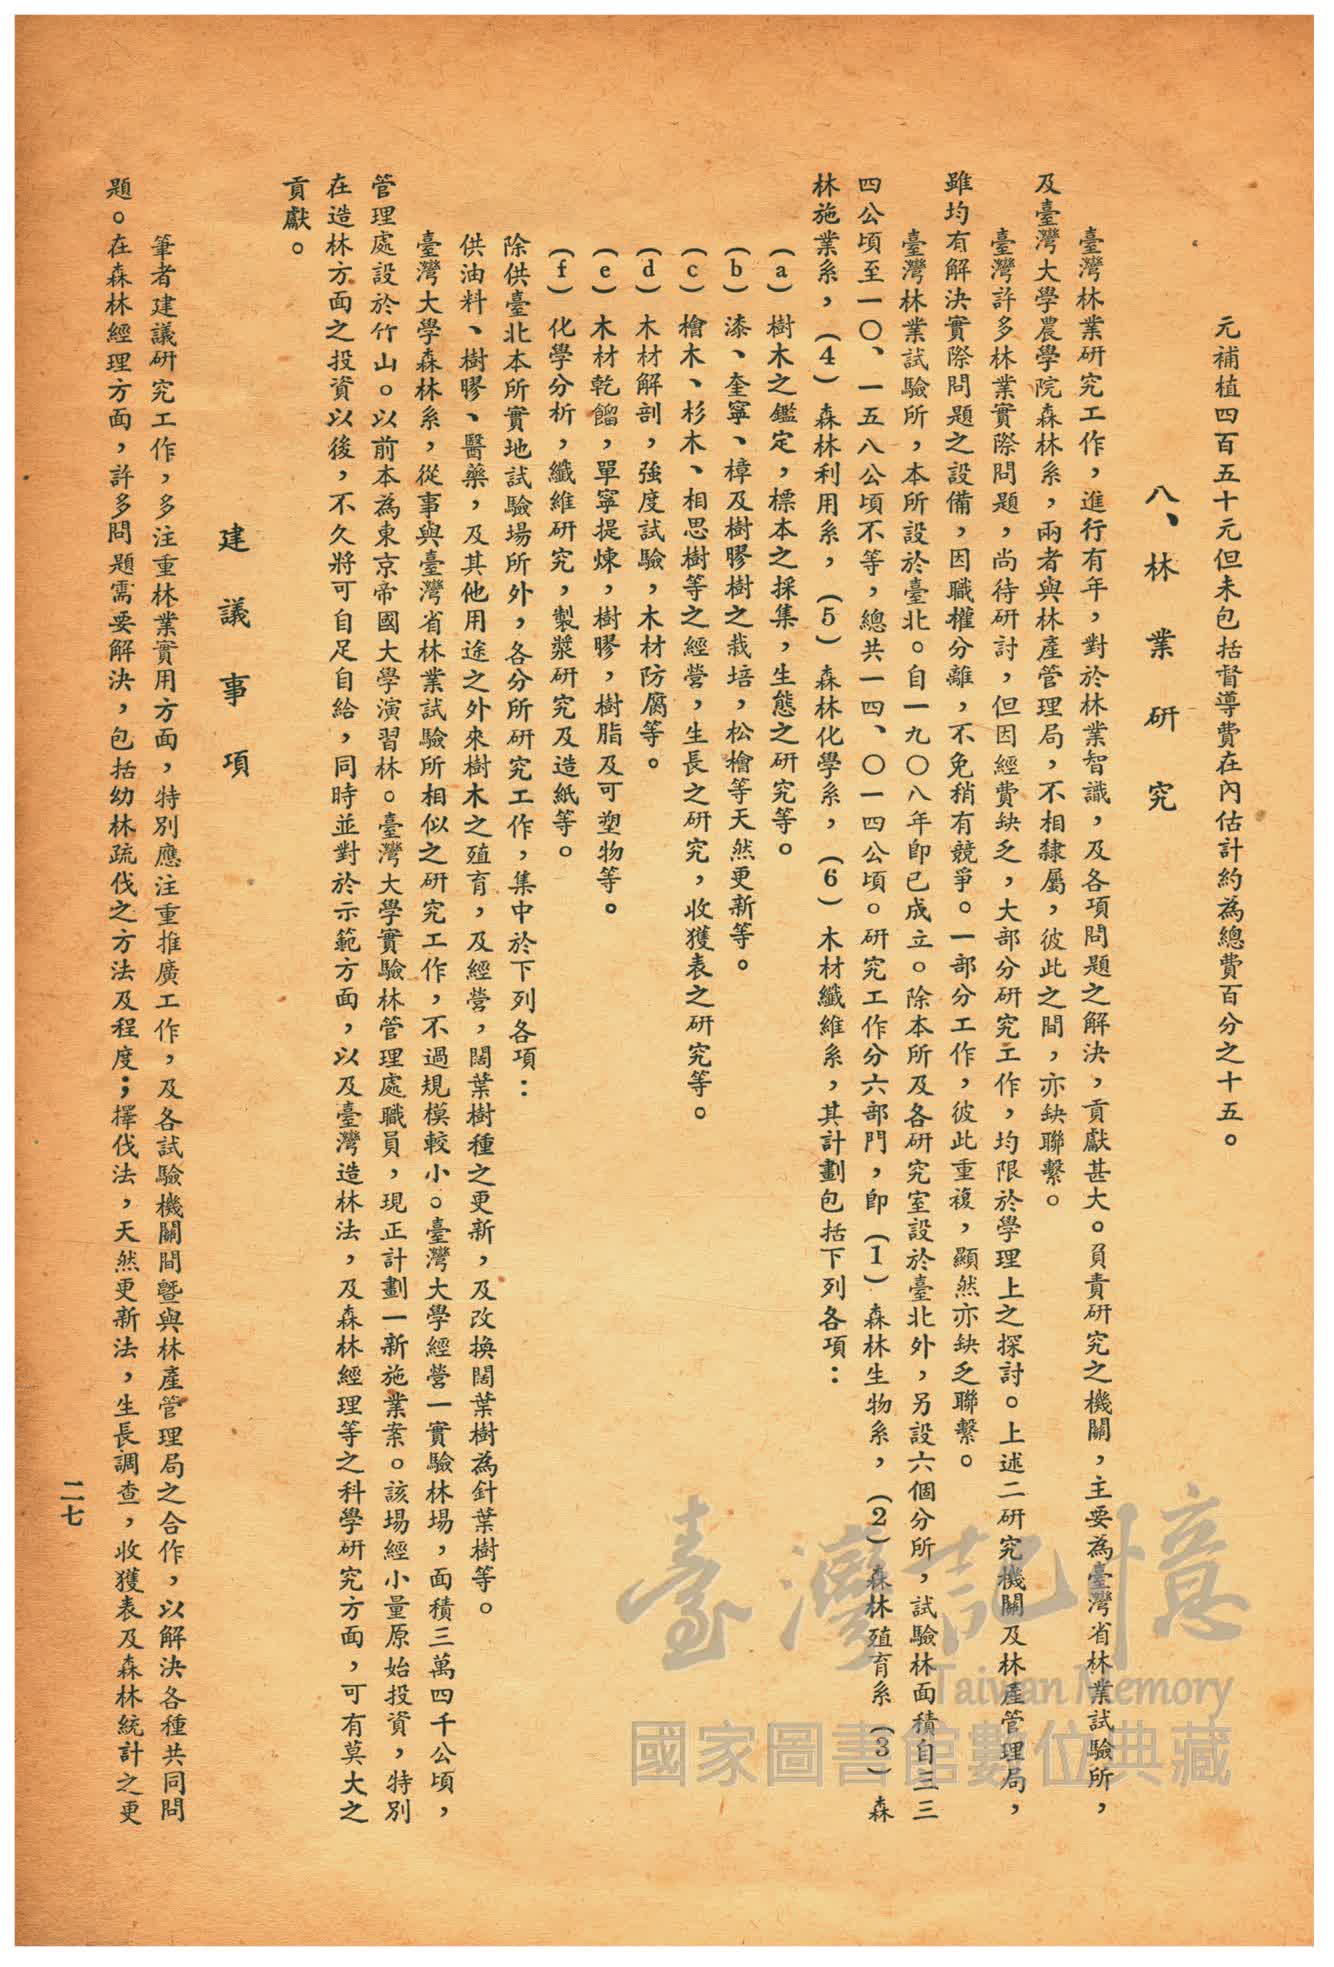 元補植四百五十元但未包括督導費在內估計約為總費百分之十五。
八、林業研究
臺灣林業研究工作，進行有年，對於林業智識，及各項問題之解決，貢獻甚大。負責研究之機關，主要為臺灣省林業試驗所，
及臺灣大學農學院森林系，兩者與林產管理局，不相隸屬，彼此之間，亦缺聯繫。
臺灣許多林業實際問題，尚待研討，但因經費缺乏，大部分研究工作，均限於學理上之探討。上述二研究機關及林產管理局，
雖均有解決實際問題之設備，因職權分離，不免稍有競爭。一部分工作，彼此重複，顯然亦缺乏聯繫。
臺灣林業試驗所，本所設於臺北。自一九〇八年即已成立。除本所及各研究室設於臺北外，另設六個分所，試驗林面積自三三
四公頃至一〇、一五八公頃不等，總共一四、〇一四公頃。研究工作分六部門，即（1）森林生物系，（2）森林殖育系（3）森
林施業系，（4）森林利用系，（5）森林化學系，（6）木材纖維系，其計劃包括下列各項：
（a）樹木之鑑定，標本之採集，生態之研究等。
（b）漆、奎寧、樟及樹膠樹之栽培，松檜等天然更新等。
（c）檜木、杉木、相思樹等之經營，生長之研究，收獲表之研究等。
（d）木材解剖，強度試驗，木材防腐等。
（e）木材乾餾，單寧提煉，樹膠，樹脂及可塑物等。
（f）化學分析，纖維研究，製漿研究及造紙等。
除供臺北本所實地試驗場所外，各分所研究工作，集中於下列各項：
供油料、樹膠、醫藥，及其他用途之外來樹木之殖育，及經營，闊葉樹種之更新，及改換闊葉樹為針葉樹等。
臺灣大學森林系，從事與臺灣省林業試驗所相似之研究工作，不過規模較小。臺灣大學經營一實驗林場，面積三萬四千公頃，
管理處設於竹山。以前本為東京帝國大學演習林。臺灣大學實驗林管理處職員，現正計劃一新施業案。該場經小量原始投資，特別
在造林方面之投資以後，不久將可自足自給，同時並對於示範方面，以及臺灣造林法，及森林經理等之科學研究方面，可有莫大之
貢獻。
建議事項
筆者建議研究工作，多注重林業實用方面，特別應注重推廣工作，及各試驗機關間暨與林產管理局之合作，以解決各種共同問
題。在森林經理方面，許多問題需要解決，包括幼林疏伐之方法及程度；擇伐法，天然更新法，生長調查，收獲表及森林統計之更
二七
臺灣記憶
Taiwan Memory
國家圖書館數位典藏